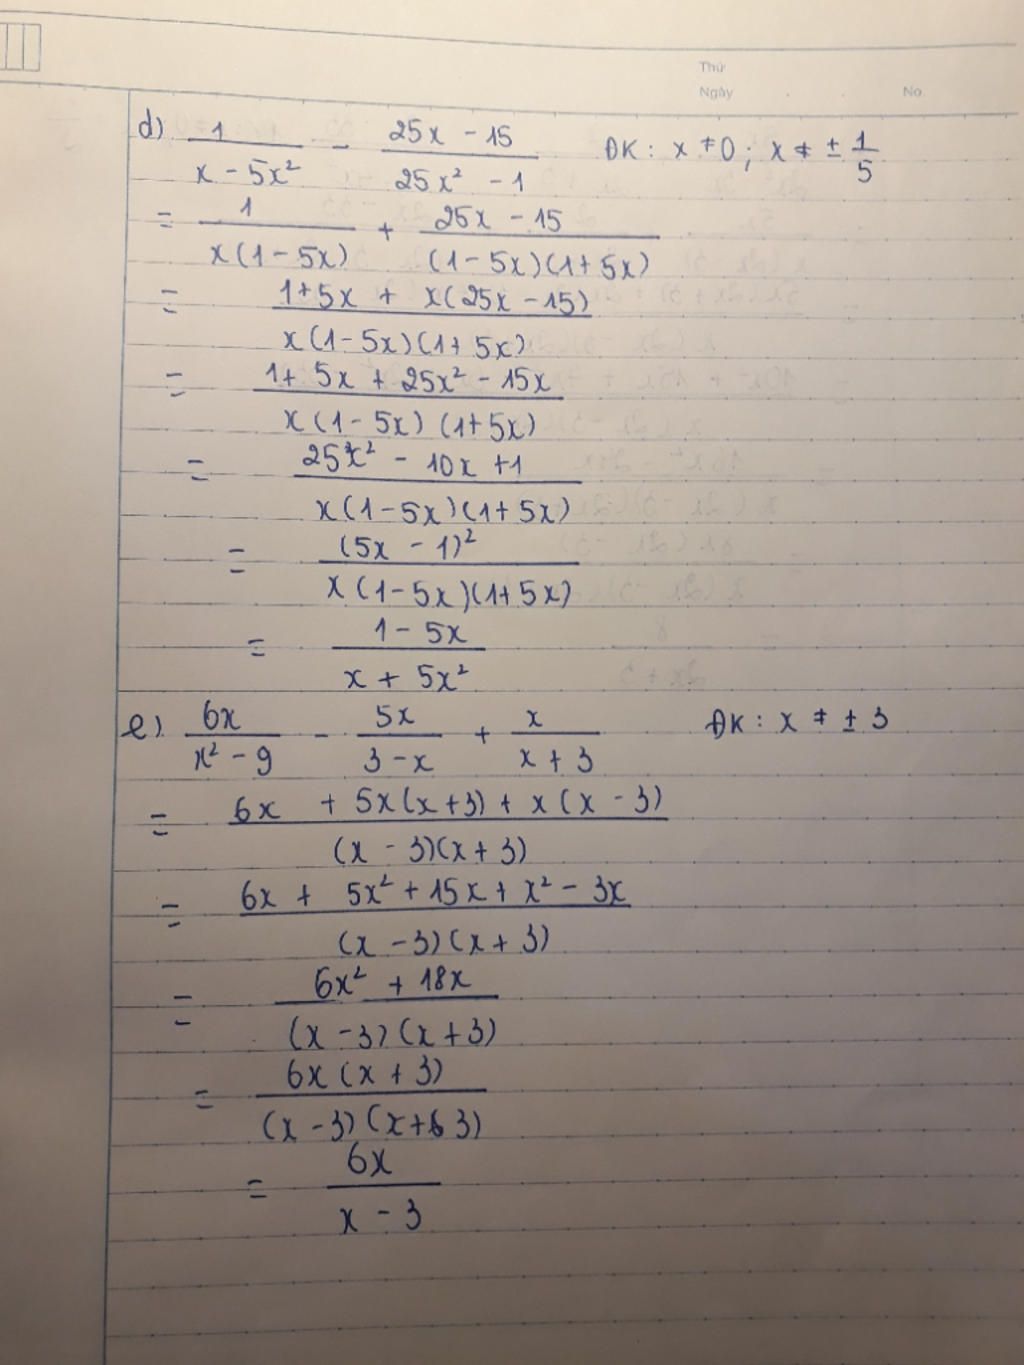 Thứ
Ngày No
d) 1/(x - 5x²) - (25x - 15)/(25x² - 1) ĐK : x ≠ 0 ; x ≠ ± 1/5
= 1/(x(1 - 5x)) + (25x - 15)/((1 - 5x)(1 + 5x))
= (1 + 5x + x(25x - 15))/(x(1 - 5x)(1 + 5x))
= (1 + 5x + 25x² - 15x)/(x(1 - 5x)(1 + 5x))
= (25x² - 10x + 1)/(x(1 - 5x)(1 + 5x))
= (5x - 1)²/(x(1 - 5x)(1 + 5x))
= (1 - 5x)/(x + 5x²)
e) 6x/(x² - 9) - 5x/(3 - x) + x/(x + 3) ĐK : x ≠ ± 3
= (6x + 5x(x + 3) + x(x - 3))/((x - 3)(x + 3))
= (6x + 5x² + 15x + x² - 3x)/((x - 3)(x + 3))
= (6x² + 18x)/((x - 3)(x + 3))
= 6x(x + 3)/((x - 3)(x + 3))
= 6x/(x - 3)